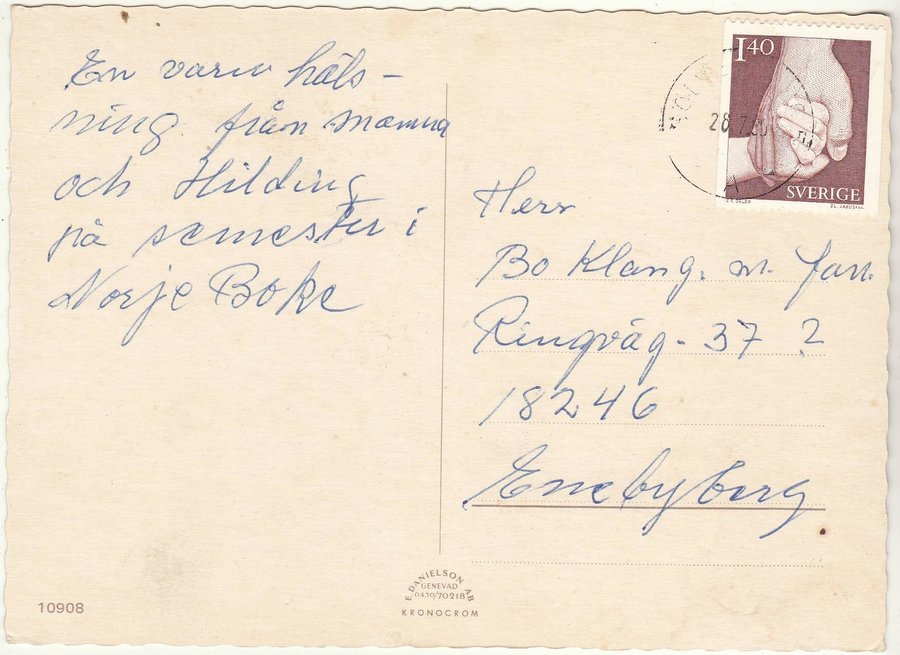 En varm häls-
ning från mamma
och Hilding
på semester i
Norje Boke
1.40
SVERIGE
28.7.80
Herr
Bo Klang. m. fam.
Ringväg. 37 ?
18246
Enebyberg
E. DANIELSON AB
GENEVAD
0430/70218
KRONOCROM
10908